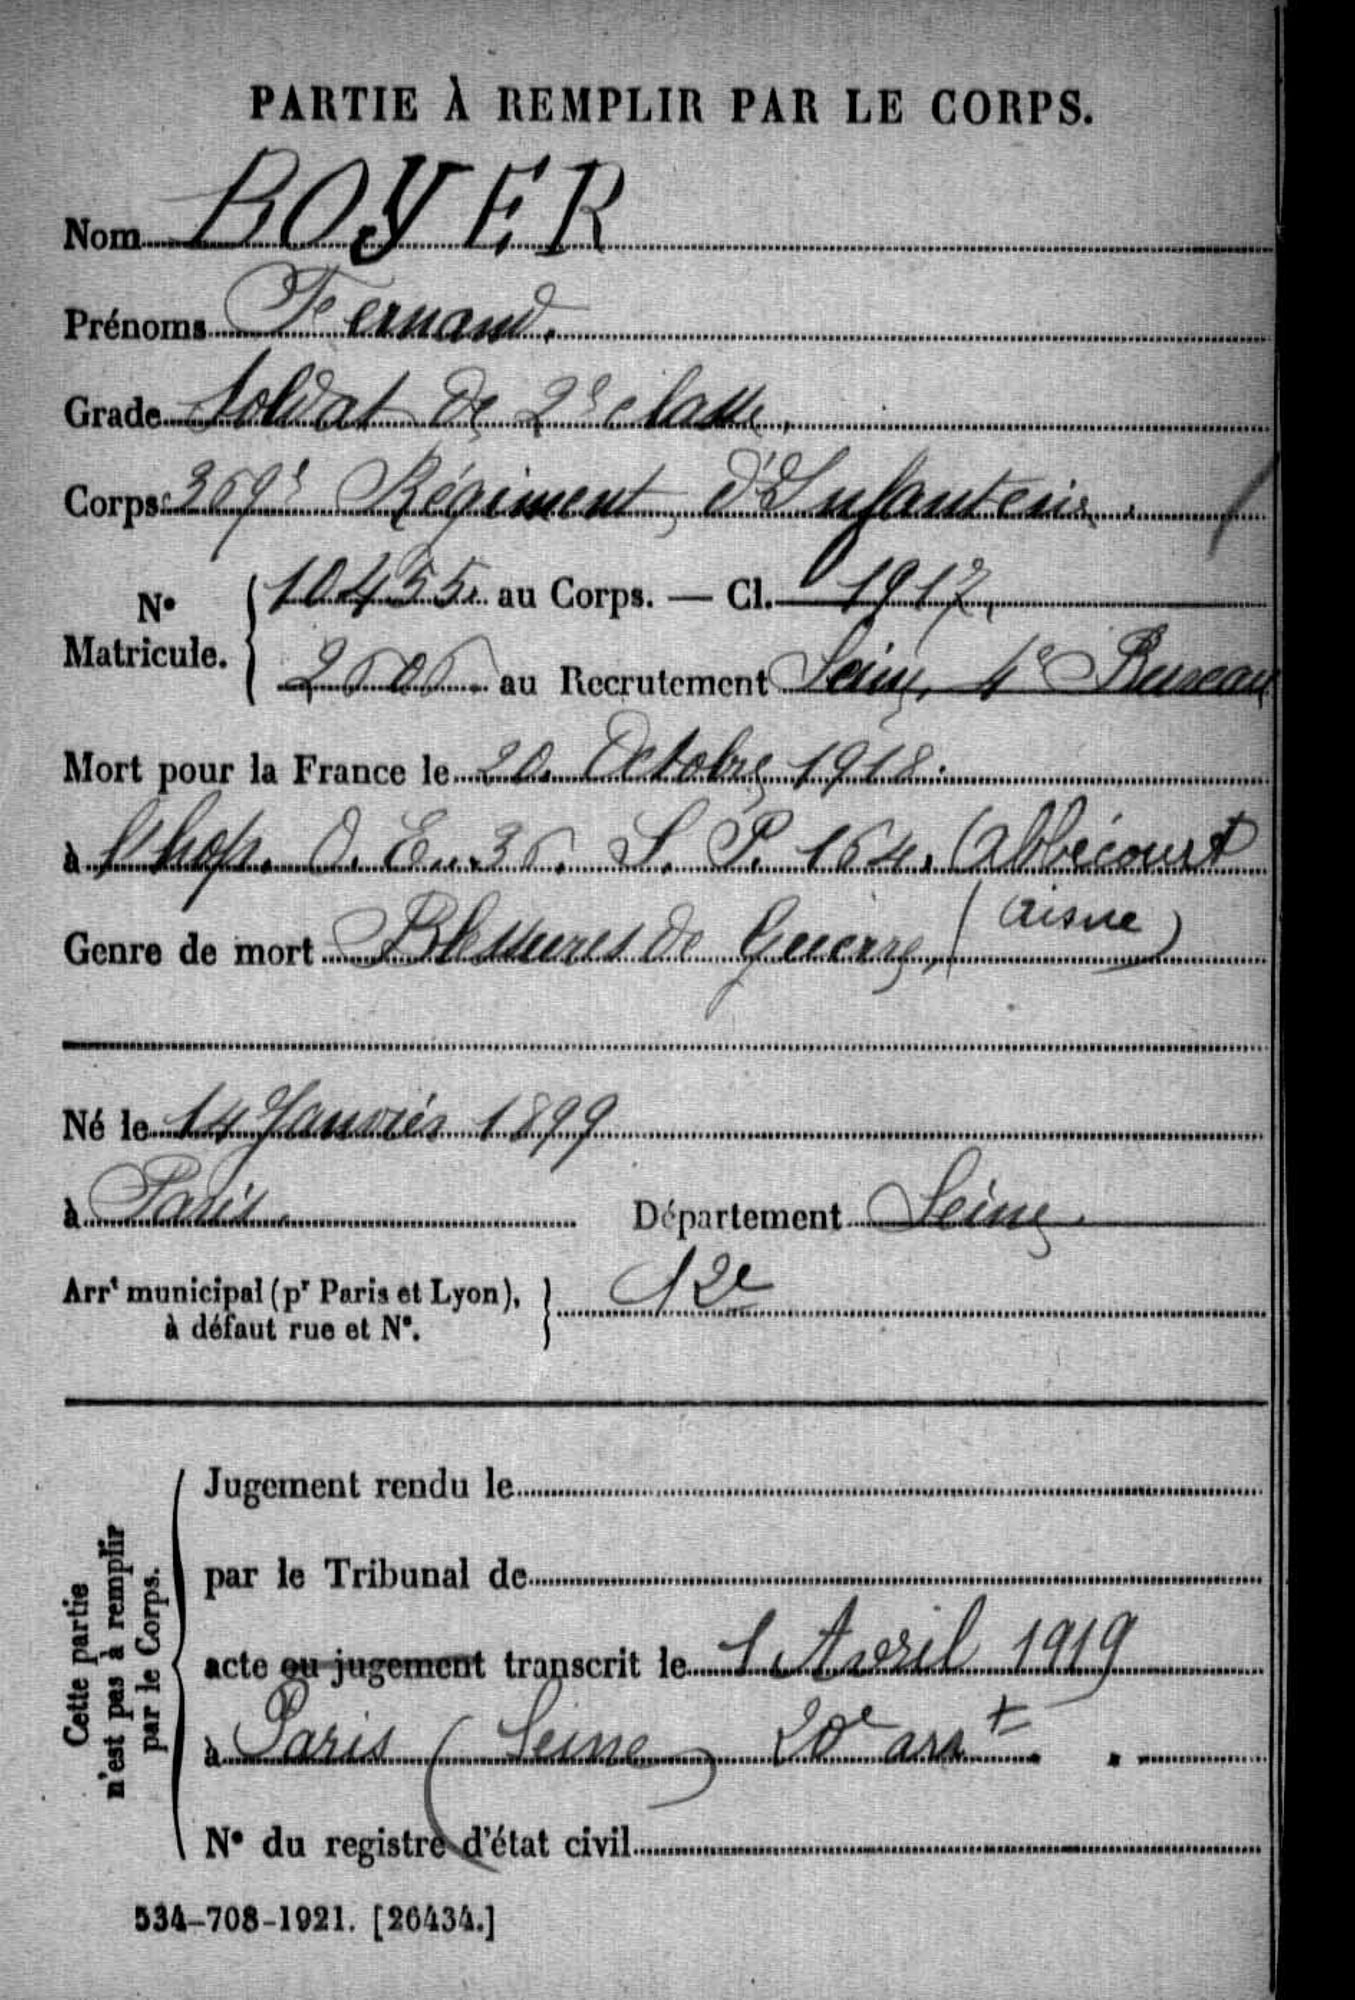 PARTIE À REMPLIR PAR LE CORPS.
Nom BOYER
Prénoms Fernand.
Grade Soldat de 2e classe.
Corps 369e Régiment d'Infanterie.
N° Matricule. { 10455 au Corps. — Cl. 1917
2606 au Recrutement Seine, 4e Bureau
Mort pour la France le 20 Octobre 1918.
à l'hop. O. E. 36. S. P. 164. (Abbécourt
Genre de mort Blessures de Guerre, (Aisne)
Né le 14 Janvier 1899
à Paris. Département Seine.
Arrt municipal (pr Paris et Lyon), à défaut rue et N°. } 12e
Cette partie n'est pas à remplir par le Corps.
Jugement rendu le
par le Tribunal de
acte ou jugement transcrit le 1 Avril 1919
à Paris (Seine) 20e arrt.
N° du registre d'état civil
534-708-1921. [26434.]